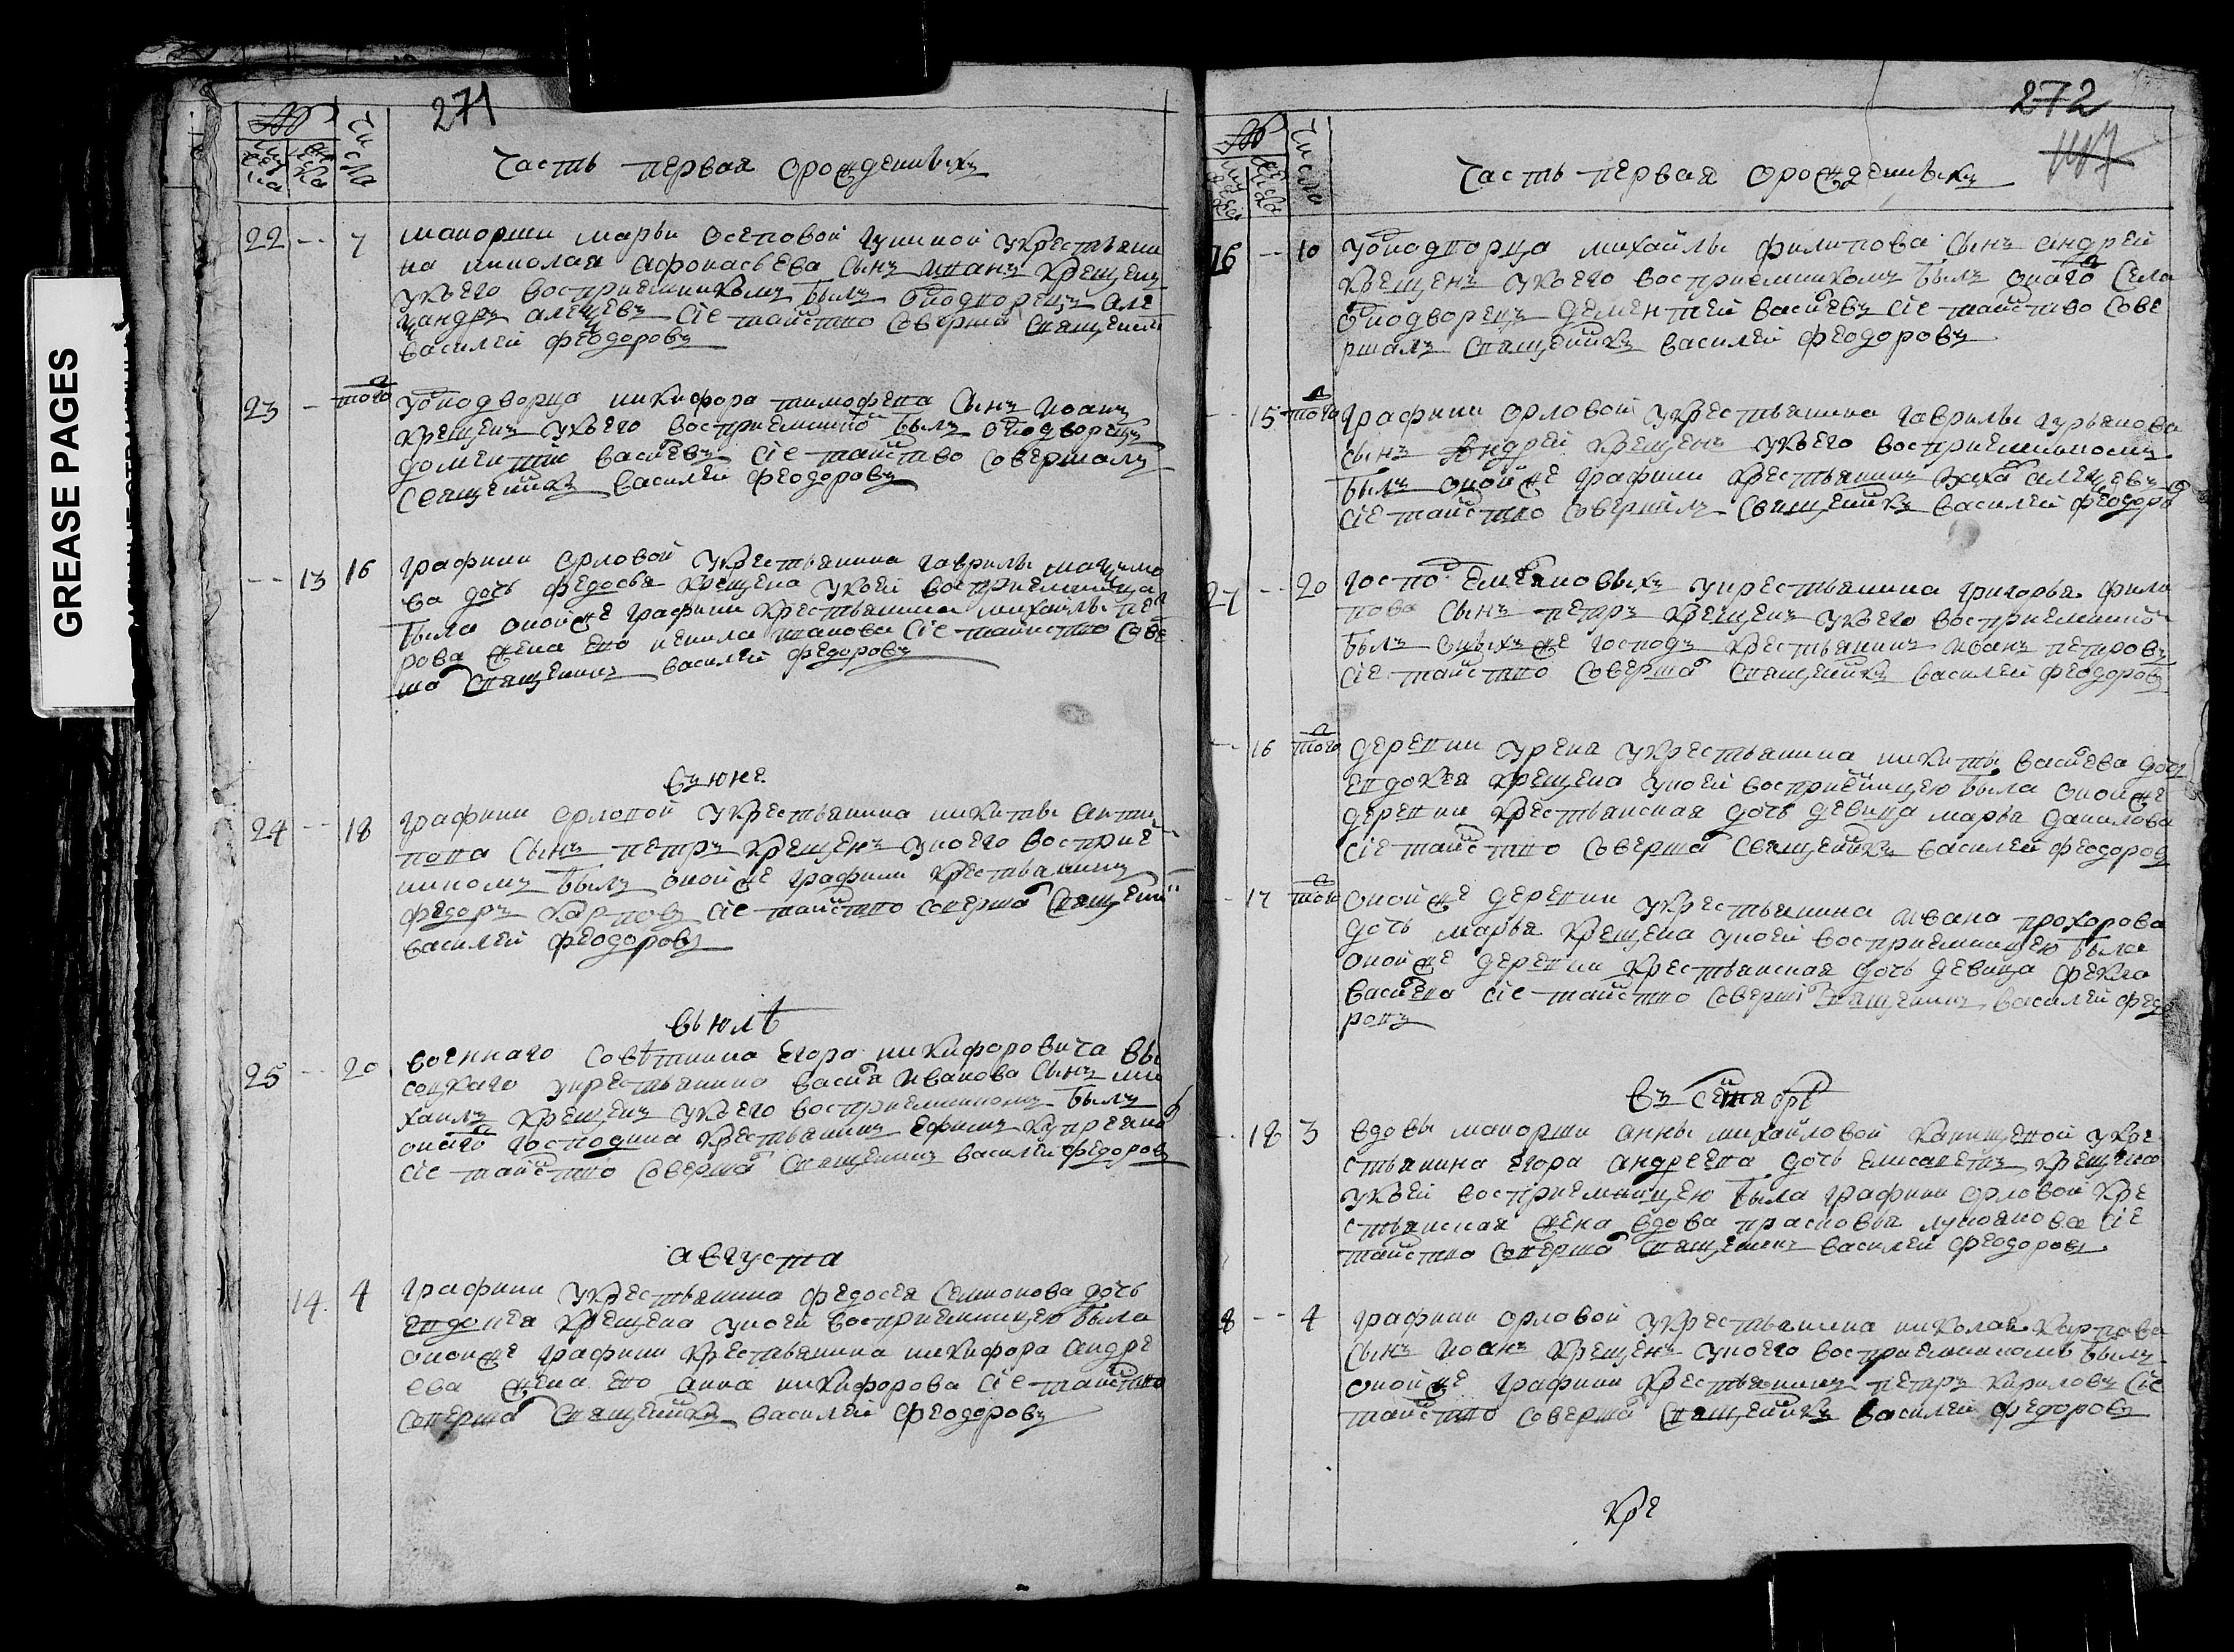 GREASE PAGES
271
№
Числа
Часть первая орождшихъ
22 -- 7 маиорши марьи осеповой крестьяни
на николая афонасьева сынъ крещенъ
укоего восприемникомъ былъ однодворецъ але
ѯандръ алеѯѣевъ сiе таиство соверша священни
василей феодоровъ
23 - того уоднодворца никифора тимофеева сынъ иоанъ
крещенъ укоего восприемнико былъ однодворецъ
доментие васиевъ сiе таиство совершалъ
священникъ василей феодоровъ
-- 13 16 графини орловой укрестьянина гаврилы маѯимо
ва дочь федосья крещена укоей восприемницею
была онойже графини крестьянина михаилы пет
рова жена ево сiе таинство сове
ша священникъ василей федоровъ
въ юне
24 -- 18 графини орловой укрестьянина никиты анти
пова сынъ петръ крещенъ укоего восприе
микомъ былъ онойже графини крестьянинъ
федоръ карповъ сiе таиство соверша священни
василей феодоровъ
вьюлѣ
25 -- 20 военнаго совѣтника егора никифоровича вы
соцкаго укрестьянина васи иванова сынъ ми
хаилъ крещенъ укоего восприемникомъ былъ
онаго господина крестьянинъ ефимъ купреяно
сiе таиство соверша священникъ василей федоровъ
августа
14 4 графини укрестьянина федосея семионова дочь
евдокея крещена укоей восприемницею была
онойже графини крестьянина никифора андре
ева жена ево анна никифорова сiе таиство
соверша священникъ василей феодоровъ
272
№
Числа
Часть первая орождшихъ
16 -- 10 уоднодворца михайлы филипова сынъ андрей
крещенъ укоего восприемникомъ былъ онаго села
однодворецъ дементей васиевъ сiе таиство сове
ршалъ священникъ василей феодоровъ
-- 15 того графини орловой укрестьянина гаврилы гурьянова
сынъ андрей крещенъ укоего восприемникомъ
былъ онойже графини крестьянинъ заха алеѯѣевъ
сiе таиство совершилъ священникъ василей феодоро
27 -- 20 госпо укрестьянина григорья фили
пова сынъ петръ крещенъ укоего восприемнико
былъ оныхъ же господъ крестьянинъ иванъ петровъ
сiе таиство соверша священникъ василей феодоровъ
-- 16 того деревни урена укрестьянина никиты васиева дочь
евдокея крещена укоей восприемницею была онойже
деревни крестьянская дочь девица марья данилова
сiе таиство соверша священникъ василей феодоровъ
- 17 того онойже деревни укрестьянина ивана прохорова
дочь марья крещена укоей восприемницею была
онойже деревни крестьянская дочь девица фекла
васиева сiе таиство соверши священникъ василей федо
ровъ
въ сентябрѣ
-- 18 3 вдовы маиорши анны михайловой укре
стьянина егора андреева дочь елисаветъ крещена
укоей восприемницею была графини орловой кре
стьянская жена вдова прасковья лукоянова сiе
таиство соверша священникъ василей феодоровъ
8 -- 4 графини орловой укрестьянина николая карпова
сынъ иоанъ крещенъ укоего восприемникомъ былъ
онойже графини крестьянинъ петръ кириловъ сiе
таиство соверша священникъ василей федоровъ
кре